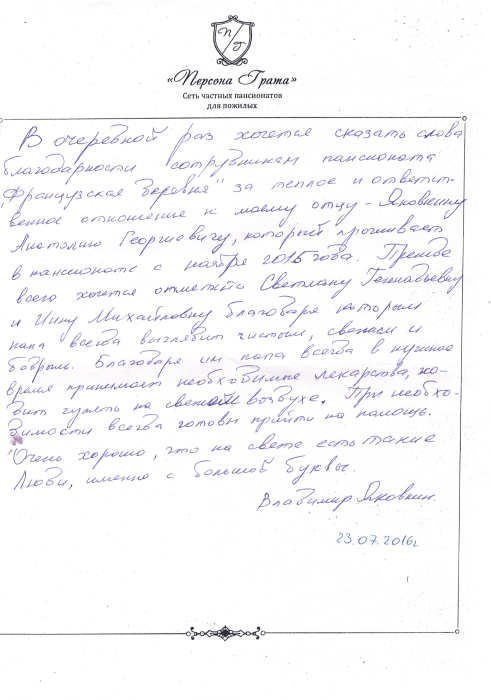 П Г
«Персона Грата»
Сеть частных пансионатов
для пожилых
В очередной раз хочется сказать слова
благодарности сотрудникам пансионата
"Французская деревня" за теплое и ответст-
венное отношение к моему отцу - Яковкину
Анатолию Георгиевичу, который проживает
в пансионате с ноября 2015 года. Прежде
всего хочется отметить Светлану Геннадьевну
и Инну Михайловну благодаря которым
папа всегда выглядит чистым, свежим и
бодрым. Благодаря им папа всегда в нужное
время принимает необходимые лекарства, хо-
дит гулять на свежем воздухе. При необхо-
димости всегда готовы прийти на помощь.
Очень хорошо, что на свете есть такие
Люди, именно с большой буквы.
Владимир Яковкин.
23.07.2016г